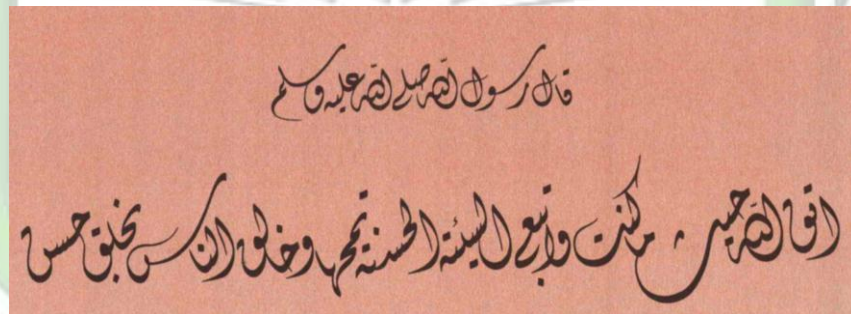 قال رسول الله صلى الله عليه وسلم
اتق الله حيث ما كنت واتبع السيئة الحسنة تمحها وخالق الناس بخلق حسن